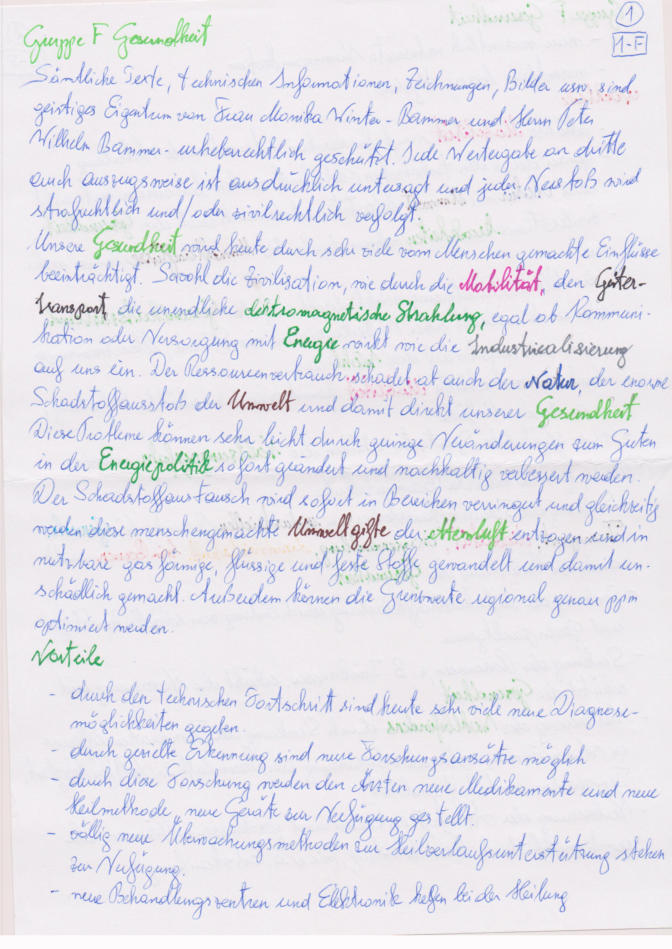 1
Gruppe F Gesundheit
1-F
Sämtliche Texte, technischen Informationen, Zeichnungen, Bilder usw. sind
geistiges Eigentum von Frau Monika Winter-Bammer und Herrn Peter
Wilhelm Bammer - urheberrechtlich geschützt. Jede Weitergabe an dritte
auch auszugsweise ist ausdrücklich untersagt und jeder Verstoß wird
strafrechtlich und/oder zivilrechtlich verfolgt.
Unsere Gesundheit wird heute durch sehr viele vom Menschen gemachte Einflüsse
beeinträchtigt. Sowohl die Zivilisation, wie durch die Mobilität, den Güter-
transport, die unendliche elektromagnetische Strahlung, egal ob Kommuni-
kation oder Versorgung mit Energie wirkt wie die Industriealisierung
auf uns ein. Der Ressourcenverbrauch schadet auch der Natur, der enorme
Schadstoffausstoß der Umwelt und damit direkt unserer Gesundheit
Diese Probleme können sehr leicht durch geringe Veränderungen zum Guten
in der Energiepolitik sofort geändert und nachhaltig verbessert werden.
Der Schadstoffaustausch wird sofort in Bereichen verringert und gleichzeitig
werden diese menschengemachte Umweltgifte der Atemluft entzogen und in
nutzbare gasförmige, flüssige und feste Stoffe gewandelt und damit un-
schädlich gemacht. Außerdem können die Grenzwerte regional genau ppm
optimiert werden.
Vorteile
- durch den technischen Fortschritt sind heute sehr viele neue Diagnose-
möglichkeiten gegeben.
- durch gezielte Erkennung sind neue Forschungsansätze möglich
- durch diese Forschung werden den Ärzten neue Medikamente und neue
Heilmethode, neue Geräte zur Verfügung gestellt.
- völlig neue Überwachungsmethoden zur Heilverlaufsunterstützung stehen
zur Verfügung.
- neue Behandlungszentren und Elektronik helfen bei der Heilung